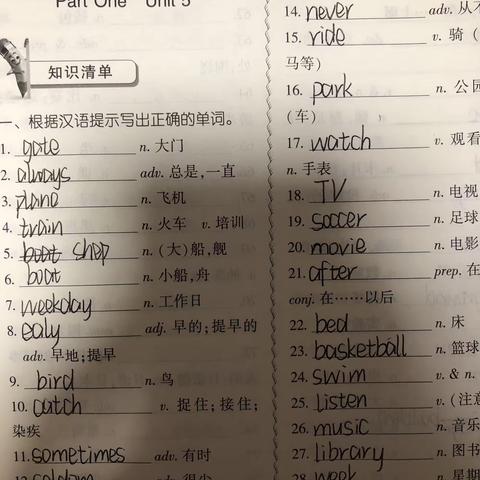 Part One Unit 5
知识清单
一、根据汉语提示写出正确的单词。
1. gate n. 大门
2. always adv. 总是,一直
3. plane n. 飞机
4. train n. 火车 v. 培训
5. boat shop n. (大)船,舰
6. boat n. 小船,舟
7. weekday n. 工作日
8. ealy adj. 早的;提早的
adv. 早地;提早
9. bird n. 鸟
10. catch v. 捉住;接住;
染疾
11. sometimes adv. 有时
12. seldom adv. 很少
14. never adv. 从不
15. ride v. 骑(
马等)
16. park n. 公园
(车)
17. watch v. 观看
n. 手表
18. TV n. 电视
19. soccer n. 足球
20. movie n. 电影
21. after prep. 在
conj. 在……以后
22. bed n. 床
23. basketball n. 篮球
24. swim v. & n.
25. listen v. (注意
26. music n. 音乐
27. library n. 图书
28. week n. 星期